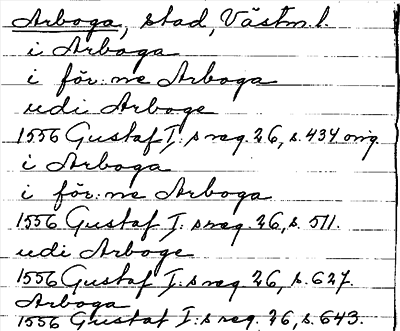 Arboga, stad, Västm. l.
i Arboga
i för:ne Arboga
udi Arboge
1556 Gustaf I:s reg. 26, s. 434 orig.
i Arboga
i för:ne Arboga
1556 Gustaf I:s reg. 26, s. 511.
udi Arboge
1556 Gustaf I:s reg. 26, s. 627.
Arboga
1556 Gustaf I:s reg. 26, s. 643.